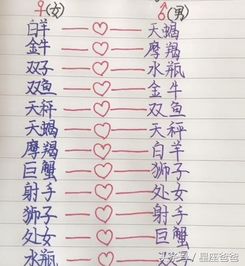 ♀(女) ♂(男)
白羊 — ♡ — 天蝎
金牛 — ♡ — 摩羯
双子 — ♡ — 水瓶
双鱼 — ♡ — 金牛
天秤 — ♡ — 双鱼
天蝎 — ♡ — 天秤
摩羯 — ♡ — 白羊
巨蟹 — ♡ — 狮子
射手 — ♡ — 处女
狮子 — ♡ — 射手
处女 — ♡ — 巨蟹
水瓶 — ♡ — 双子
头条 / 星座爸爸